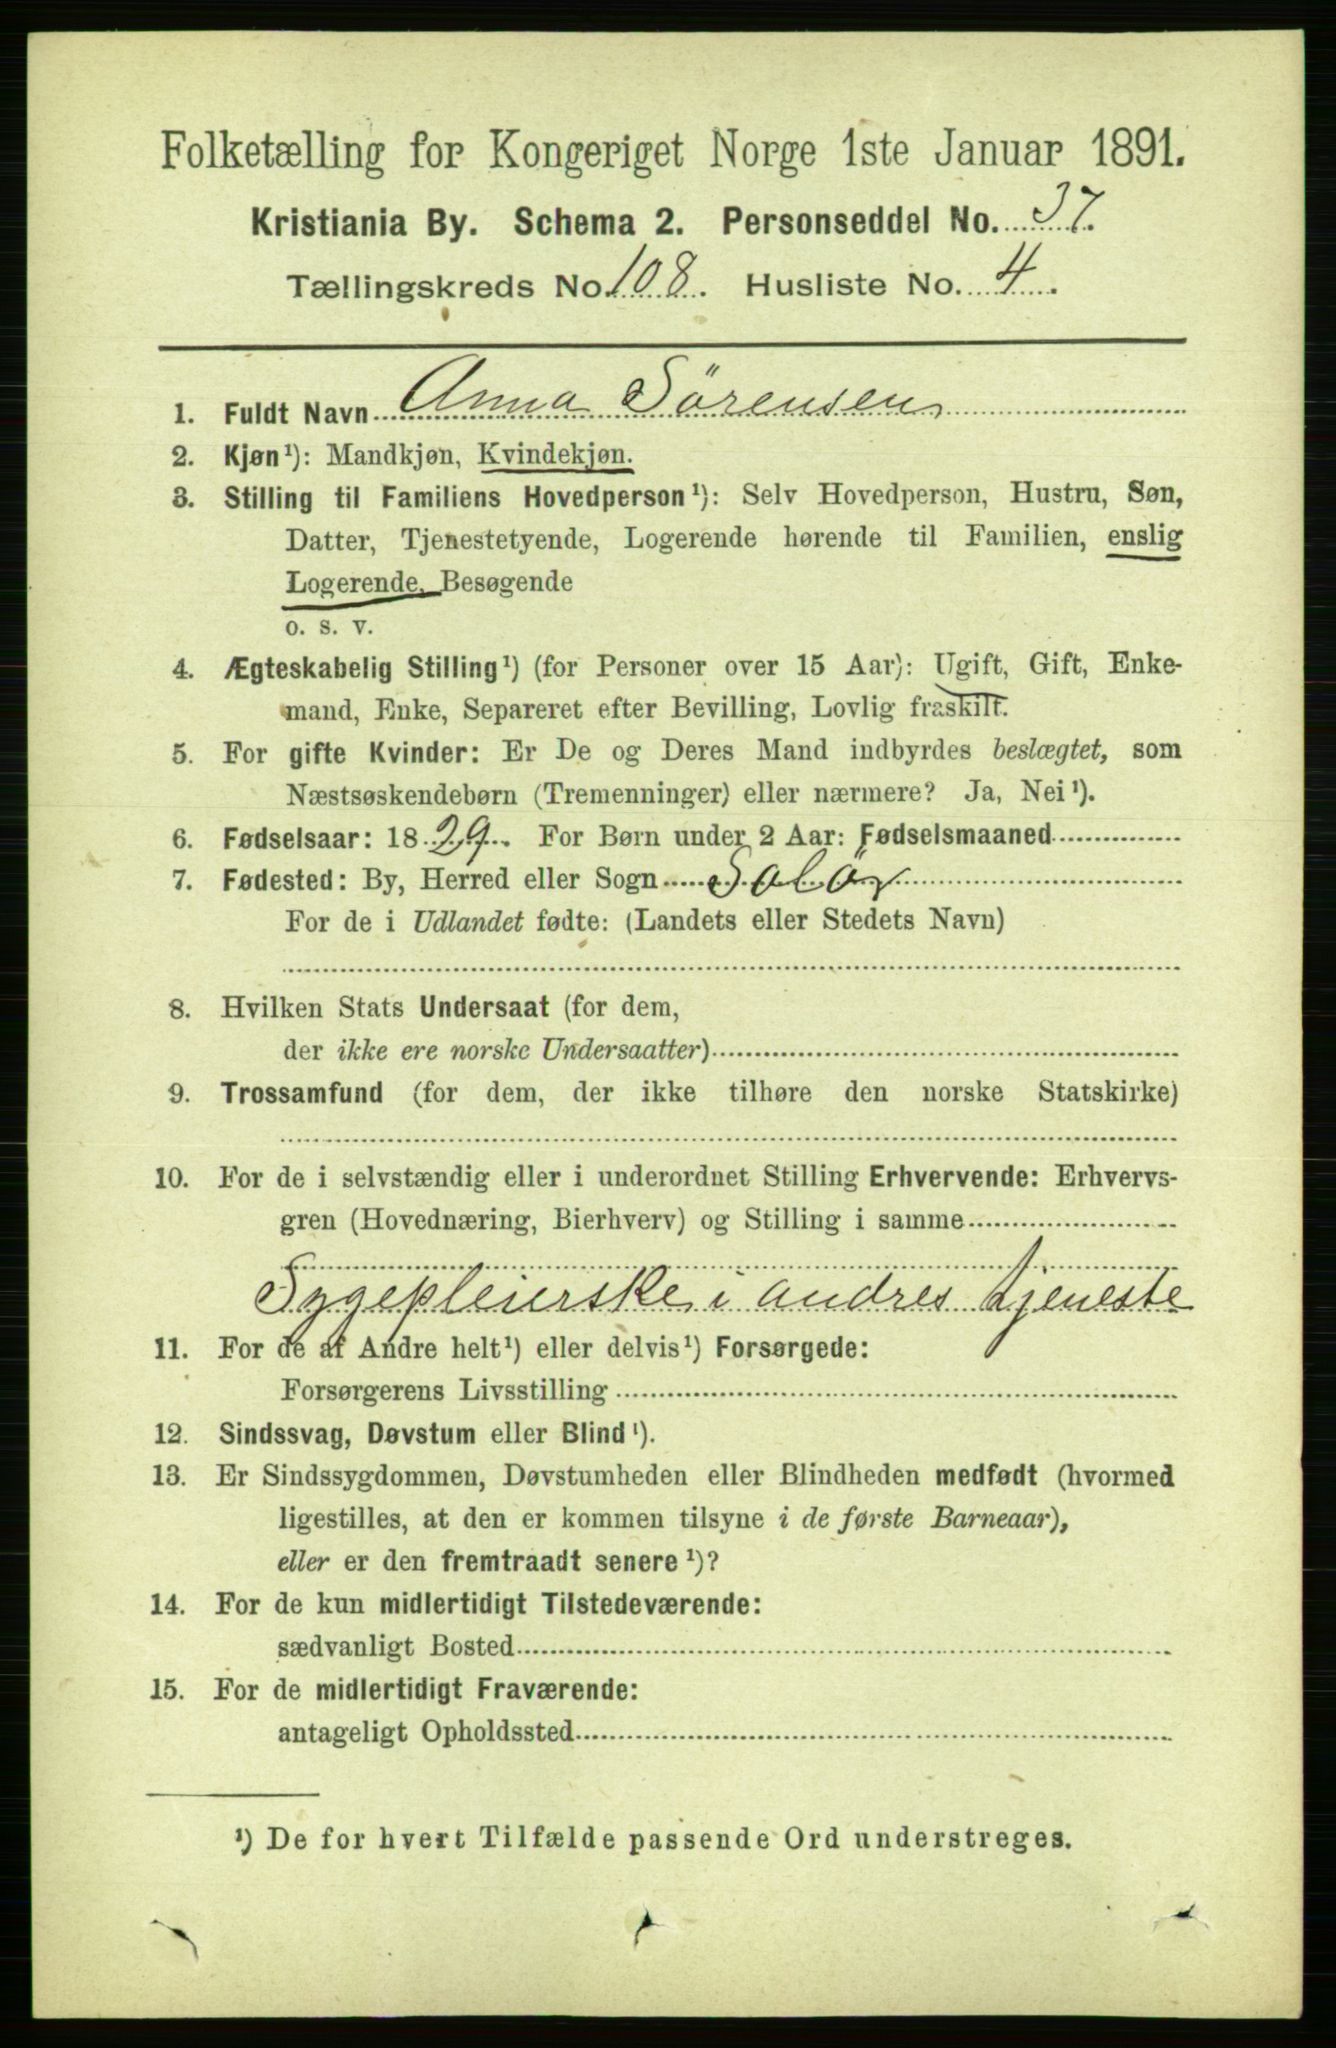 Folketælling for Kongeriget Norge 1ste Januar 1891.
Kristiania By. Schema 2. Personseddel No. 37.
Tællingskreds No. 108. Husliste No. 4.
1. Fuldt Navn Anna Sörensen
2. Kjøn¹): Mandkjøn, Kvindekjøn.
3. Stilling til Familiens Hovedperson¹): Selv Hovedperson, Hustru, Søn,
Datter, Tjenestetyende, Logerende hørende til Familien, enslig
Logerende, Besøgende
o. s. v.
4. Ægteskabelig Stilling¹) (for Personer over 15 Aar): Ugift, Gift, Enke-
mand, Enke, Separeret efter Bevilling, Lovlig fraskilt.
5. For gifte Kvinder: Er De og Deres Mand indbyrdes beslægtet, som
Næstsøskendebørn (Tremenninger) eller nærmere? Ja, Nei¹).
6. Fødselsaar: 1829. For Børn under 2 Aar: Fødselsmaaned
7. Fødested: By, Herred eller Sogn Solör
For de i Udlandet fødte: (Landets eller Stedets Navn)
8. Hvilken Stats Undersaat (for dem,
der ikke ere norske Undersaatter)
9. Trossamfund (for dem, der ikke tilhøre den norske Statskirke)
10. For de i selvstændig eller i underordnet Stilling Erhvervende: Erhvervs-
gren (Hovednæring, Bierhverv) og Stilling i samme
Sygepleierske i andres tjeneste
11. For de af Andre helt¹) eller delvis¹) Forsørgede:
Forsørgerens Livsstilling
12. Sindssvag, Døvstum eller Blind¹).
13. Er Sindssygdommen, Døvstumheden eller Blindheden medfødt (hvormed
ligestilles, at den er kommen tilsyne i de første Barneaar),
eller er den fremtraadt senere¹)?
14. For de kun midlertidigt Tilstedeværende:
sædvanligt Bosted
15. For de midlertidigt Fraværende:
antageligt Opholdssted
¹) De for hvert Tilfælde passende Ord understreges.